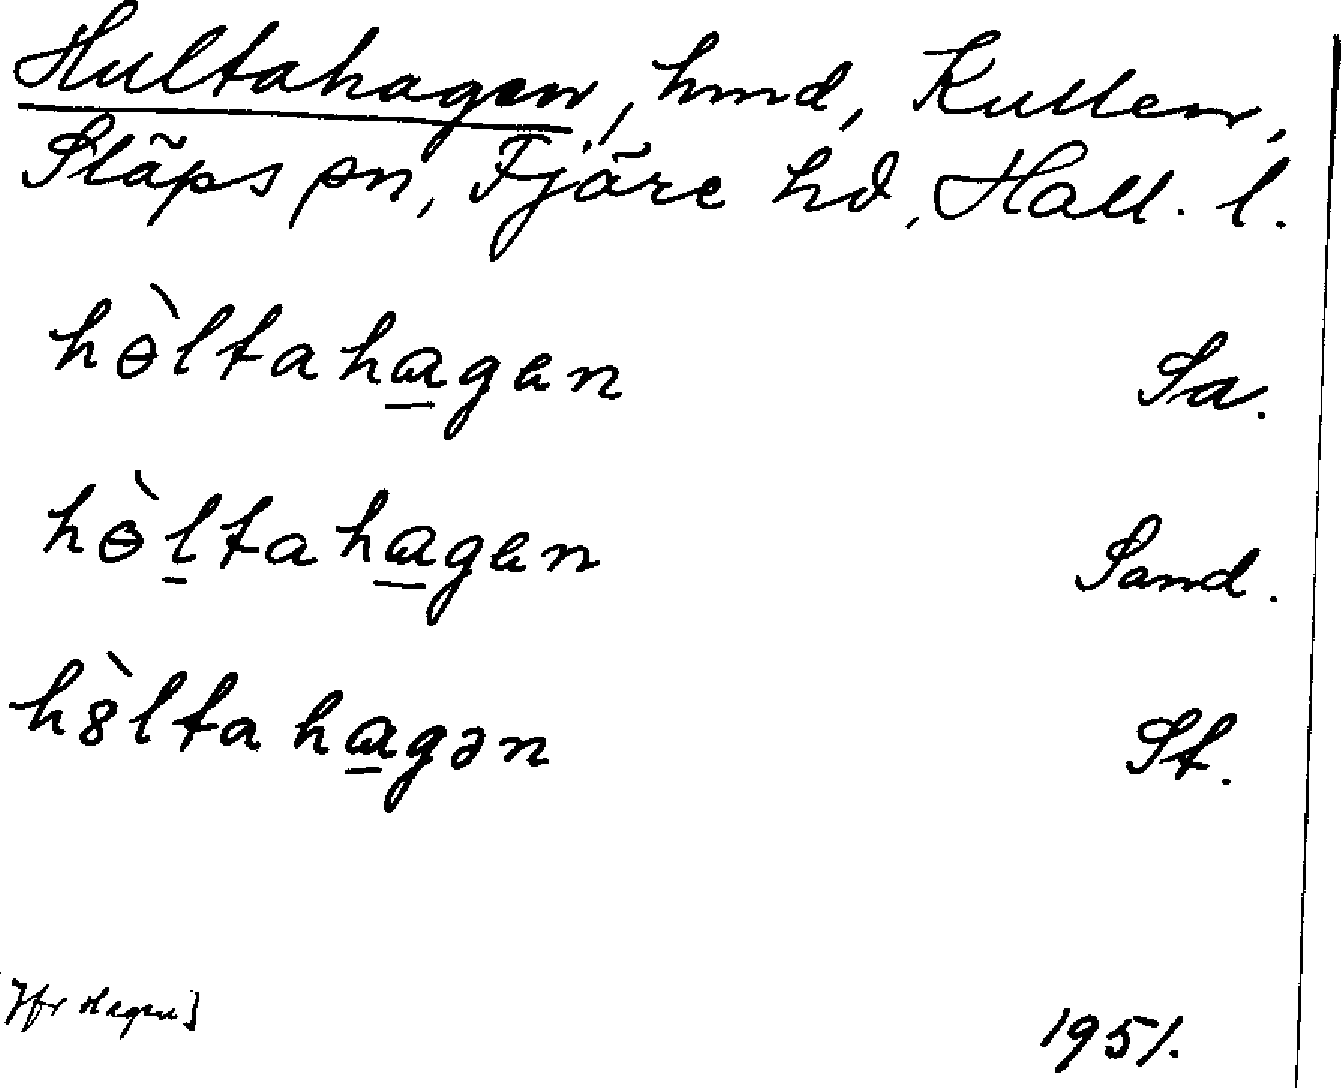 Hultahagen, hmd, Kullen,
Släps sn, Fjäre hd, Hall. l.
hɵ̀ltahɑ̱gen Sa.
hɵ̀ḻtahɑ̱gen Sand.
h8̀ltahɑ̱gən St.
[Jfr Hagen]
1951.